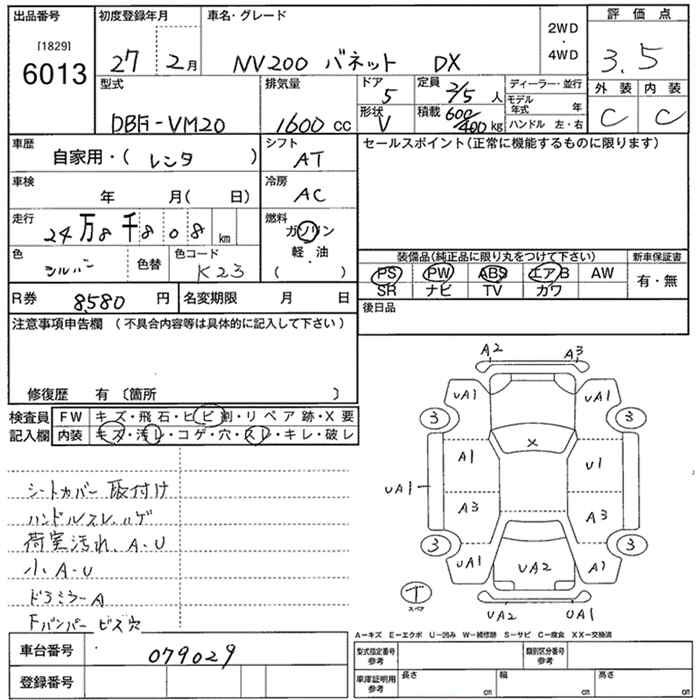 出品番号 初度登録年月 車名・グレード 2WD 評価点
[1829] 4WD
6013 27 2月 NV200 バネット DX 3.5
型式 排気量 ドア 5 定員 2/5 人 ディーラー・並行 外装 内装
DBF-VM20 1600 cc 形状 V 積載 600/400 kg モデル年式 年 C C
ハンドル 左・右
車歴 自家用・(レンタ) シフト AT セールスポイント(正常に機能するものに限ります)
車検 年 月( 日) 冷房 AC
走行 24万8千808 km 燃料 ガソリン
色 シルバー 色替 色コード K23 軽・油 ( )
装備品(純正品に限り丸をつけて下さい) 新車保証書
PS PW ABS エアB AW 有・無
SR ナビ TV カワ
R券 8,580 円 名変期限 月 日 後日品
注意事項申告欄 (不具合内容等は具体的に記入して下さい)
修復歴 有 〔箇所 〕
検査員記入欄 FW キズ・飛石・ヒビ割・リペア跡・X要
内装 キズ・汚レ・コゲ・穴・スレ・キレ・破レ
シートカバー 取付け
ハンドルスレ、ハゲ
荷室汚れ、A-U
小A-U
ドアミラーA
Fバンパー ビス穴
A2 A3
UA1 UA1
3 3
X
A1 U1
UA1
A3 A3
3 3
UA1 UA2 A1
T
スペア
UA2 UA1
A−キズ E−エクボ U−凹み W−補修跡 S−サビ C−腐食 XX−交換済
車台番号 079029 型式指定番号 参考 類別区分番号 参考
登録番号 車庫証明用 参考 長さ cm 幅 cm 高さ cm